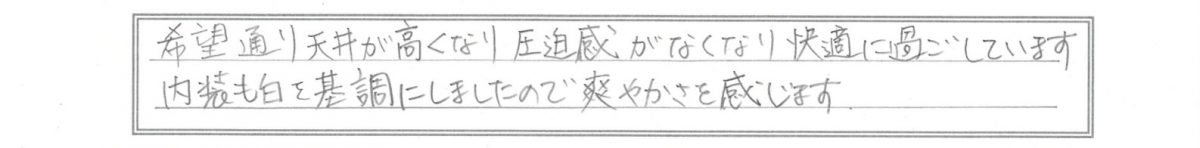 希望通り天井が高くなり圧迫感がなくなり快適に過ごしています
内装も白を基調にしましたので爽やかさを感じます